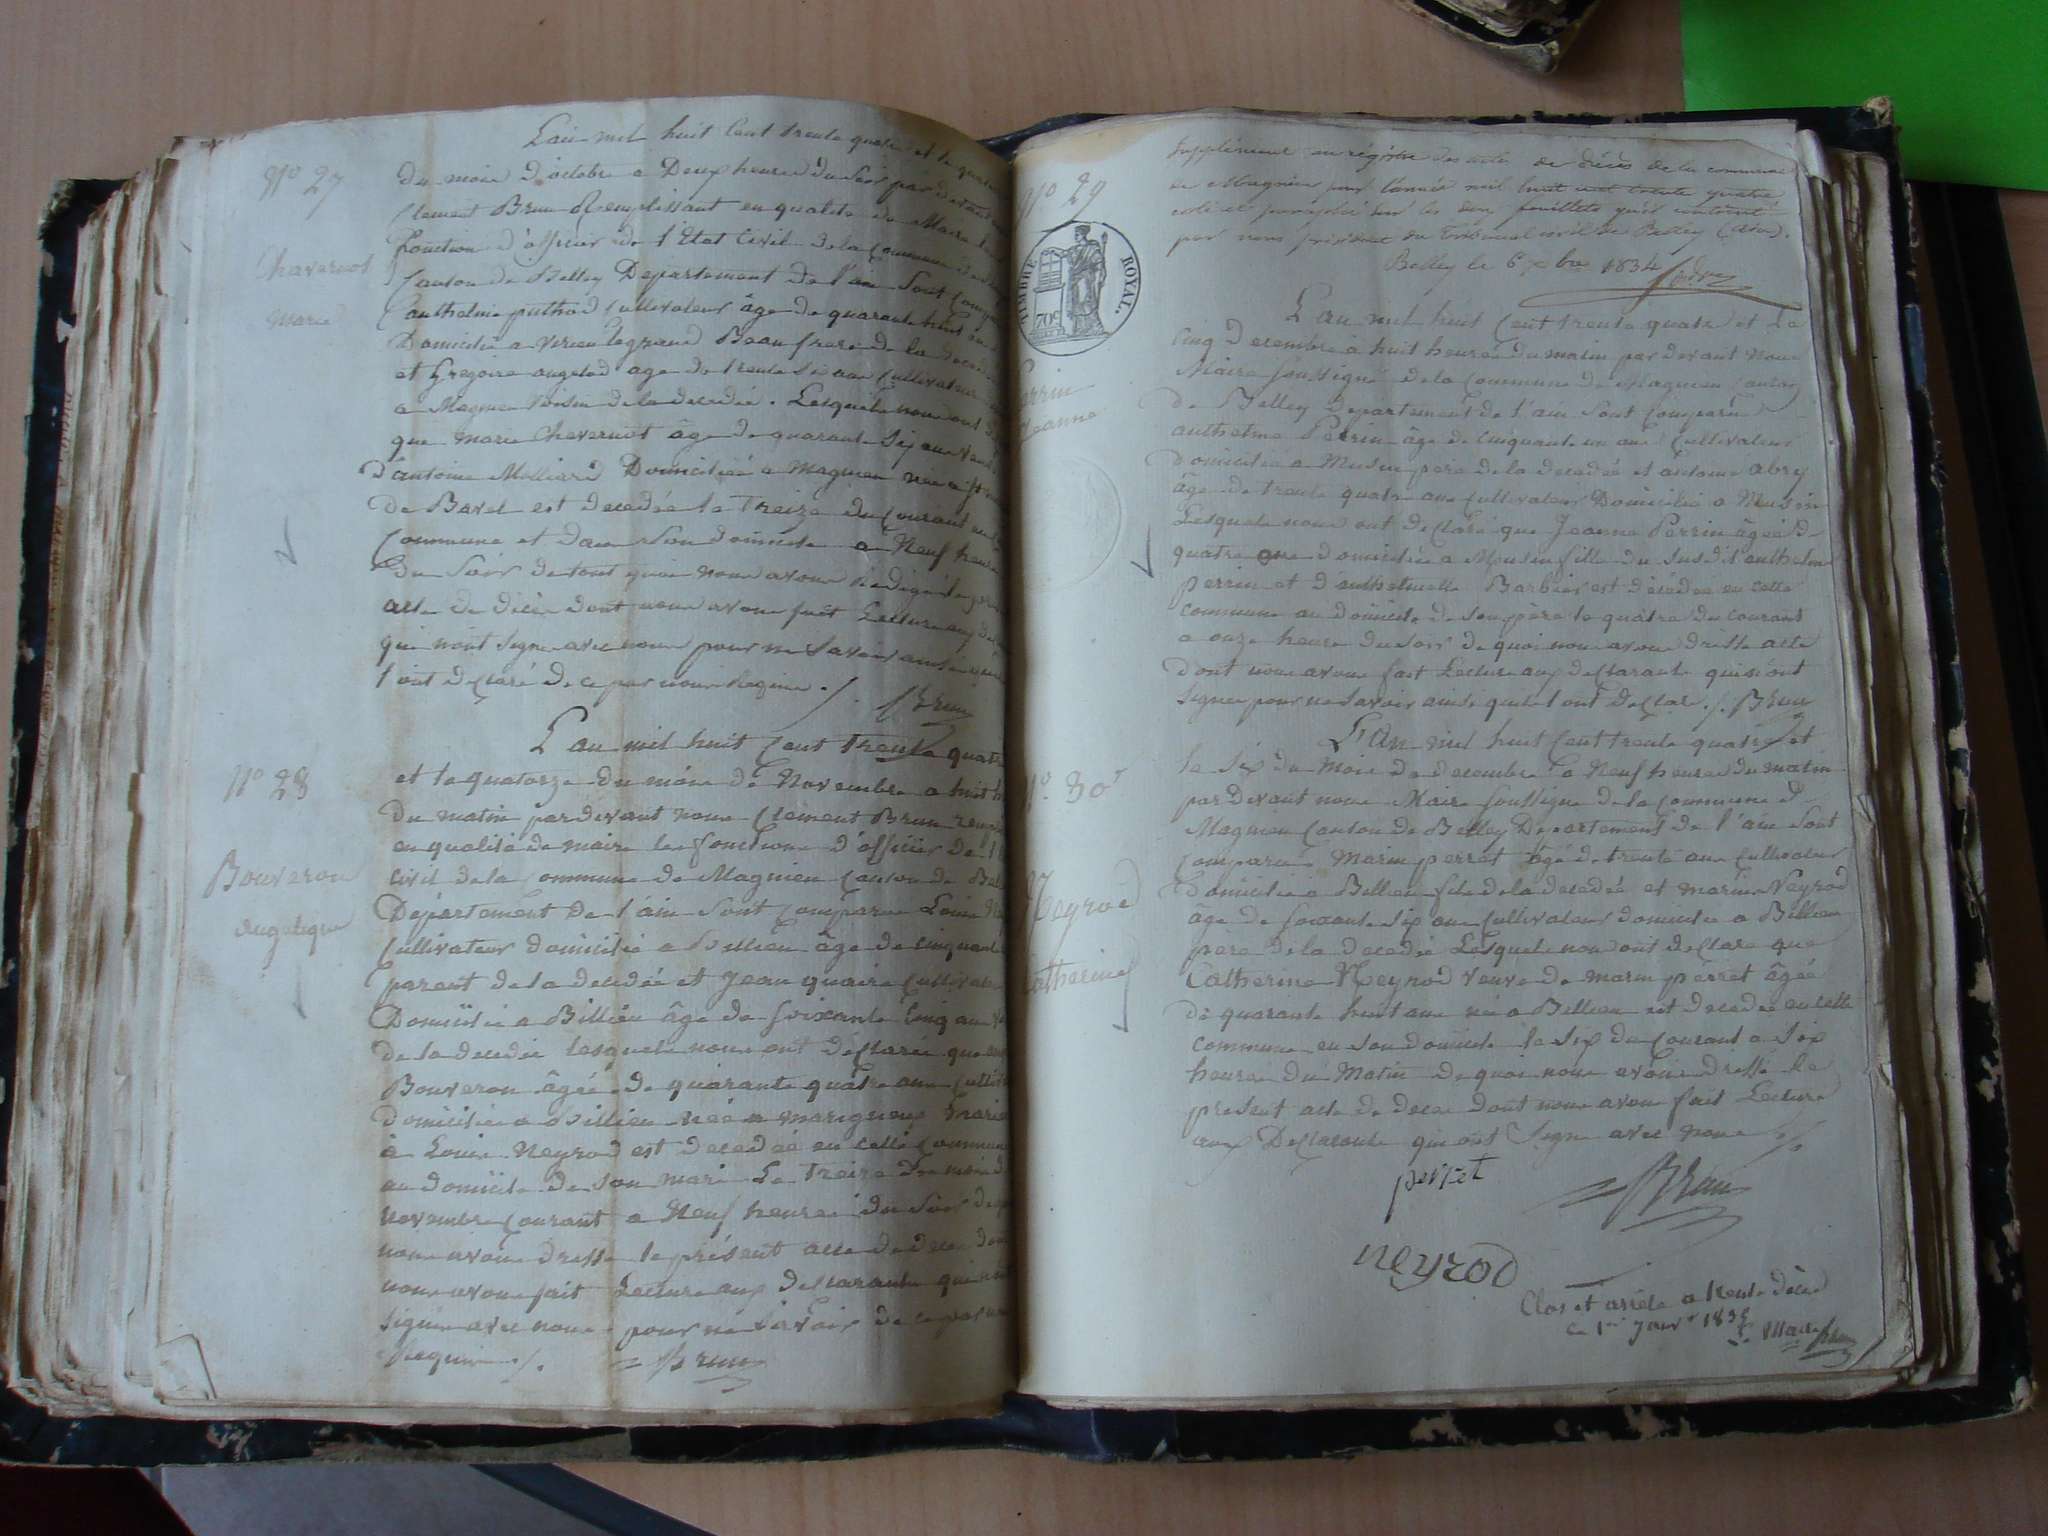 L'an mil huit Cent trente quatre et le
N° 27
du mois d'octobre a Deux heures du Soir par devant
Clement Brun Remplissant en qualité de Maire les
Fonction d'officier de l'Etat Civil de la Commune de
Chavernot
Canton de Belley Departement de l'ain Sont
Marie
Canthelme puthod Cultivateur âge de quarante huit ans
Domicilié a Virieu le grand Beau frere de la
et Gregoire angelod age de trente Cultivateur
a Magnieu voisin de la decedée. Lesquels nous ont
que marie Chavernot âge de quarante Six ans veuve
d'antoine Molliard Domiciliée a Magnieu née a St
De Bavel est decedée le Treize du Courant en
Commune et dans Son domicile a Neuf heures
Du Soir de tout quoi nous avons Redigé le
acte de décès dont nous avons fait Lecture aux
qui n'ont signe avec nous pour ne Savoir ainsi
l'ont declaré de ce par nous Requis ./. Brun
L'an mil huit Cent Trente quatre
N° 28
et le quatorze du mois de Novembre a huit
du matin pardevant nous Clement Brun
en qualité de maire les fonctions d'officier de l'
Bouveron
civil de la Commune de Magnieu Canton de
angelique
Departement de l'ain Sont Comparus Louis
Cultivateur domicilié a Billieu âge de cinquante
parent de la decedée et Jean quaire
Domicilié a Billieu âge de Soixante Cinq ans
de la decedée lesquels nous ont declarée que
Bouveron âgée de quarante quatre ans
domiciliée a Billieu née a marignieux
à Louis Neyrod est decedée en cette Commune
au domicile de Son mari Le Treize du mois de
Novembre Courant a Neuf heures du Soir
nous avons dressé le présent acte de deces
nous avons fait Lecture aux declarants qui
signé avec nous pour ne Savoir de ce par
Requis ./. Brun
Supplément au régistre des actes de décès de la commune
de Magnieu pour l'année mil huit cent trente quatre
coté et paraphé sur les deux feuillets qu'il contient
par nous président du Tribunal civil de Belley (Ain).
Belley le 6 xbre 1834
N° 29
TIMBRE ROYAL.
70c
L'an mil huit Cent trente quatre et Le
Cinq Decembre à huit heures du matin par devant nous
Maire Soussigné de la Commune de Magnieu Canton
de Belley Departement de l'ain Sont Comparus
Perrin
Jeanne
anthelme Perrin âge de cinquante un ans Cultivateur
domicilié a Musin pere de la decedée et antoine abry
age de trente quatre ans Cultivateur Domicilié a Musin
Lesquels nous ont declaré que Jeanne Perrin âgée de
quatre ans domiciliée a Musin fille du Susdit anthelme
perrin et d'anthelmette Barbier est décedée en cette
commune au domicile de Son père le quatre du courant
a onze heures du Soir de quoi nous avons dressé acte
dont nous avons fait Lecture aux declarants qui n'ont
Signer pour ne Savoir ainsi qu'ils l'ont declaré ./. Brun
L'An mil huit Cent trente quatre et
N° 30
le Six du Mois de decembre a Neuf heures du matin
par devant nous Maire Soussigné de la Commune de
Magnieu Canton de Belley Departement de l'ain Sont
Comparus Marin perret âgé de trente ans Cultivateur
Neyrod
Catherine
domicilié a Billieu fils de la decedée et marin Neyrod
âge de Soixante Six ans Cultivateur domicilié a Billieu
pere de la decedée Lesquels nous ont declare que
Catherine Neyrod veuve de marin perret âgée
de quarante huit ans née a Billieu est decedée en cette
commune en Son domicile le Six du Courant a Six
heures du Matin de quoi nous avons dressé le
present acte de deces dont nous avons fait Lecture
aux Declarants qui ont Signe avec nous ./.
perret Brun
neyrod
Clos et arrêté a trente décès
Ce 1er Janvr 1835
Brun